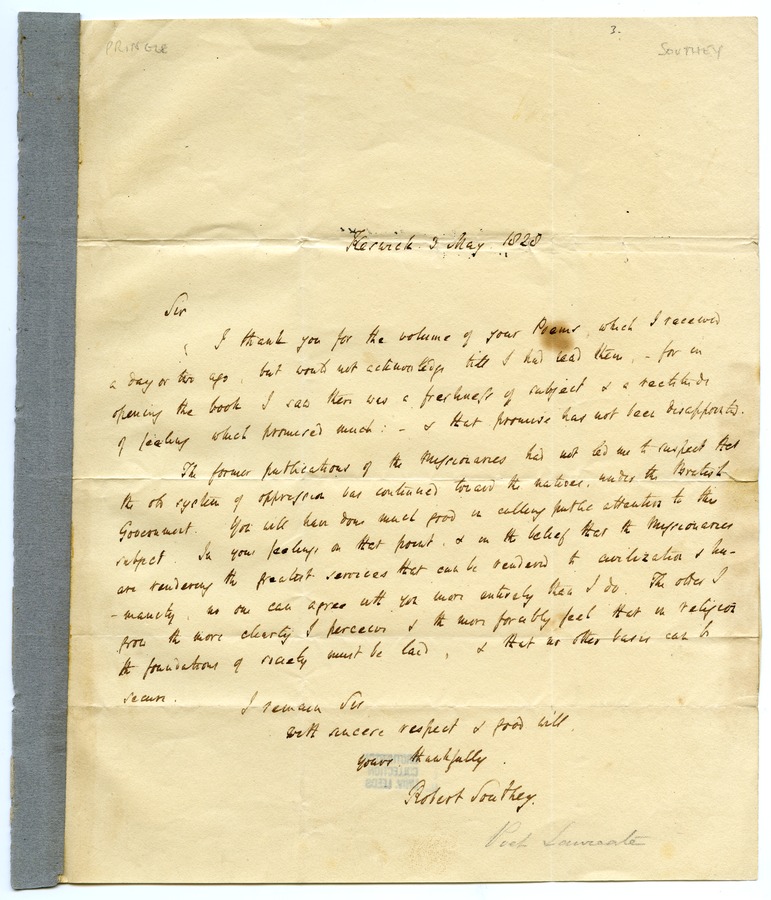 3.
PRINGLE
SOUTHEY
Keswick 3 May 1828
Sir
I thank you for the volume of your Poems, which I received
a day or two ago, but would not acknowledge till I had read them, - for in
opening the book I saw there was a freshness of subject & a rectitude
of feeling which promised much: - & that promise has not been disappointed.
The former publications of the Missionaries had not led me to suspect that
the old system of oppression was continued toward the natives, under the British
Government. You will have done much good in calling public attention to this
subject. In your feelings on that point, & in the belief that the Missionaries
are rendering the greatest services that can be rendered to civilization & hu-
-manity, no one can agree with you more entirely than I do. The older I
grow the more clearly I perceive & the more forcibly feel that in religion
the foundations of society must be laid, & that no other basis can be
secure.
I remain Sir
with sincere respect & good will,
yours thankfully.
Robert Southey.
Poet Laureate